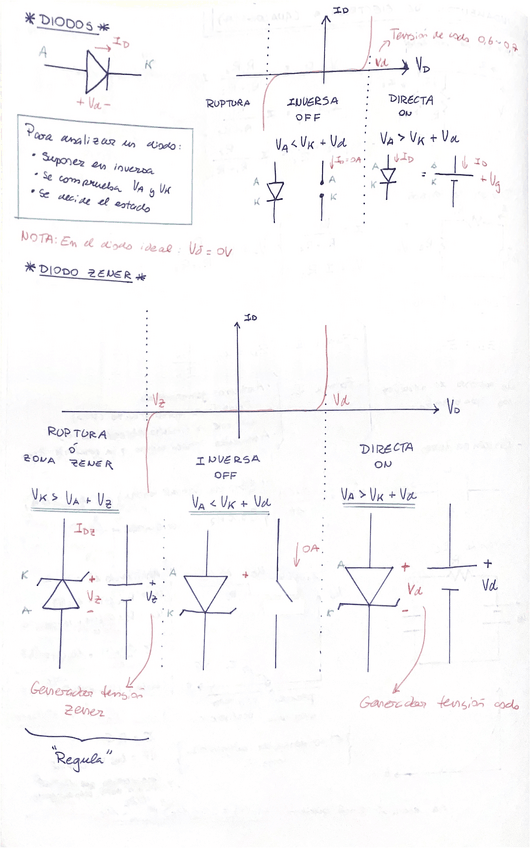 * DIODOS *
A
ID
K
+ Vd -
Para analizar un diodo:
• Suponer en inversa
• Se comprueba VA y VK
• Se decide el estado
NOTA: En el diodo ideal: Vd = 0V
ID
Tensión de codo 0,6-0,7
Vd
VD
RUPTURA
INVERSA
OFF
DIRECTA
ON
VA < VK + Vd
VA > VK + Vd
A
K
ID=0A
A
K
A
K
ID
=
A
K
ID
+ Vg
* DIODO ZENER *
ID
Vz
Vd
VD
RUPTURA
ó
ZONA ZENER
INVERSA
OFF
DIRECTA
ON
VK > VA + Vz
VA < VK + Vd
VA > VK + Vd
IDZ
K
A
+
Vz
-
+
Vz
-
A
K
+
0A
A
K
+
Vd
-
+
Vd
-
Generador tensión
zener
Generador tensión codo
"Regula"